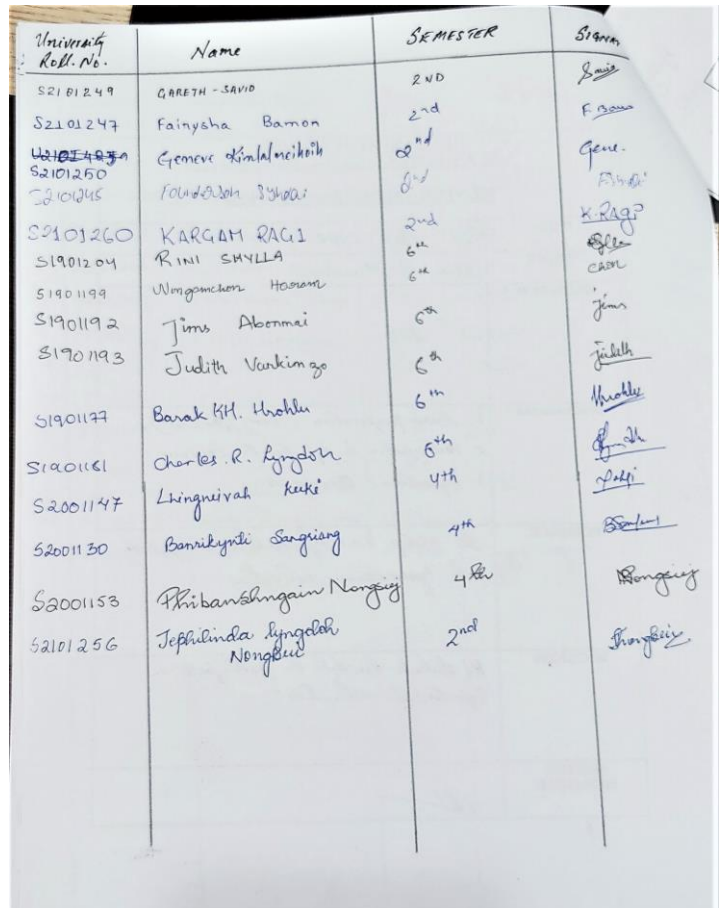 University Roll. No. Name SEMESTER SIGNA
S2101249 GARETH - SAVIO 2ND
S2101247 Fainysha Bamon 2nd F. Bam
Geneve Kimlalneihoih 2nd Gene.
S2101250
S2101245 2nd
S2101260 KARGAM RAGI 2nd K. RAGI
S1901204 RINI SHYLLA 6th
S1901199 6th
S1901192 Jims Abonmai 6th Jims
S1901193 Judith Varkimzo 6th Judith
S1901177 Barak KH. Hrohlu 6th Hrohlu
S1901161 Charles. R. Lyngdoh 6th
S2001147 Lhingneivah Kuki 4th
S2001130 Banrikynti Sangriang 4th
S2001153 Phibanshngain Nongsiej 4th Nongsiej
S2101256 Jephilinda Lyngdoh 2nd
Nongbui